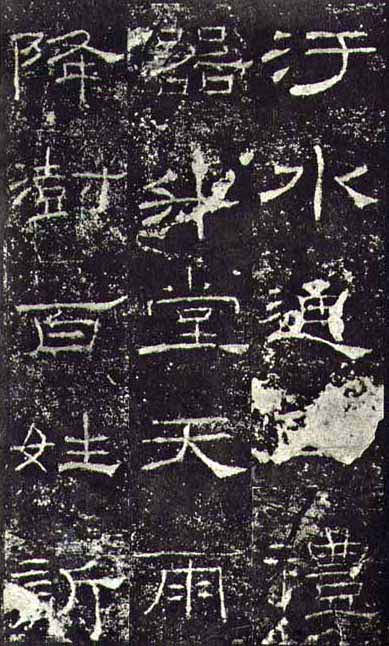 汙水通禮
器升堂天雨
降澍百姓訢